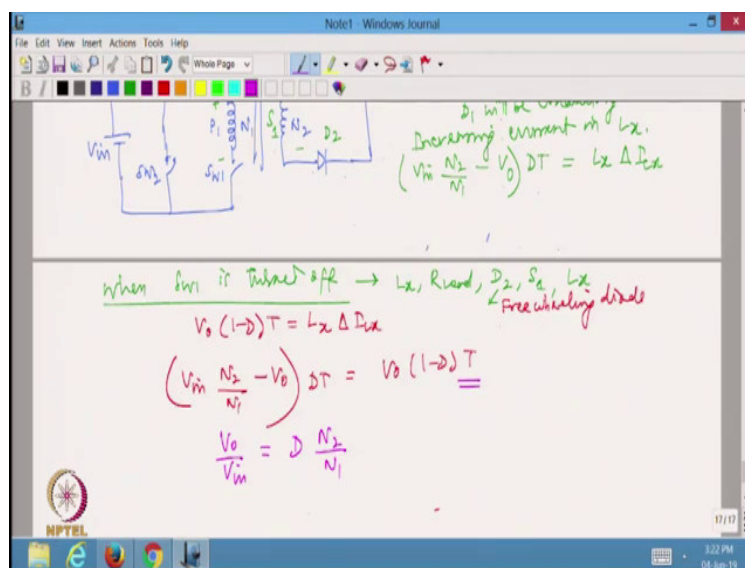 Note1 - Windows Journal
File Edit View Insert Actions Tools Help
Whole Page
B I
D1 will be conducting
Increasing current in Lx.
(Vin N2/N1 - V0) DT = Lx ΔILx
Vin SW2 P1 N1 SW1 S1 N2 D2
+ -
When SW1 is turned off → Lx, RLoad, D2, S1, Lx
Freewheeling diode
V0 (1-D) T = Lx ΔILx
(Vin N2/N1 - V0) DT = V0 (1-D) T
V0/Vin = D N2/N1
NPTEL
17/17
3:22 PM
04-Jun-19